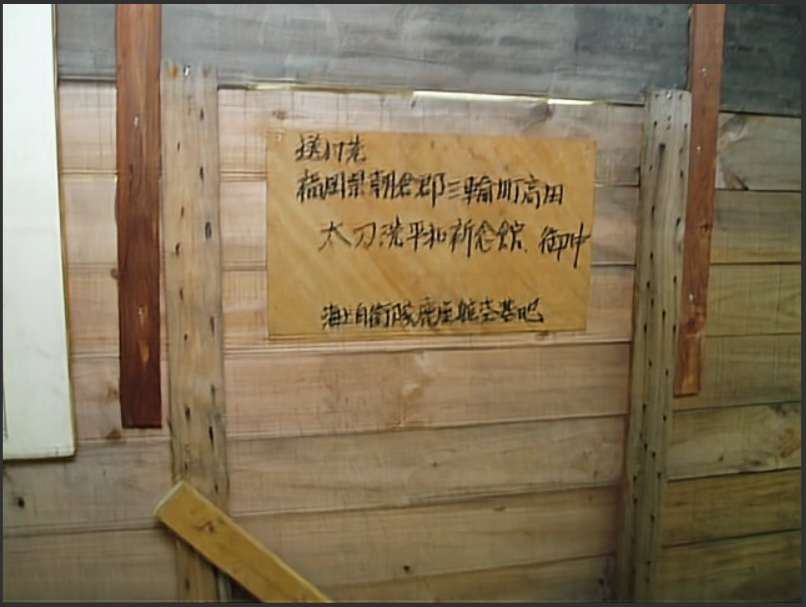 送付先
福岡県朝倉郡三輪町高田
太刀洗平和祈念館、御中
海上自衛隊鹿屋航空基地